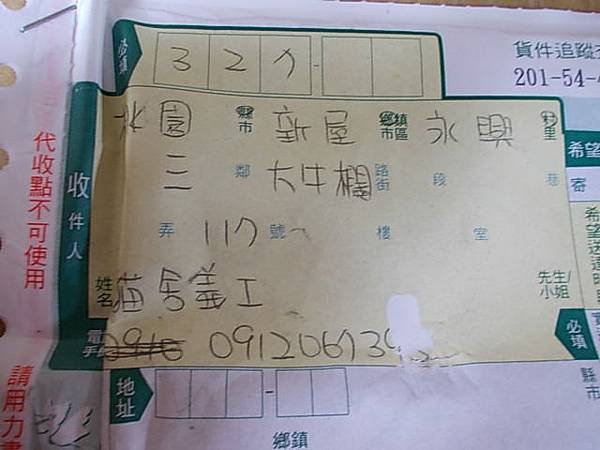 必填 327-
貨件追蹤查
201-54-4
桃園縣市 新屋鄉鎮市區 永興村里
三鄰 大牛欄路街 段 巷
弄 117號 樓 室
收件人
姓名 猫舍義工 先生/小姐
電 手 0912067
必填
地址
-
鄉鎮
縣市
代收點不可使用
請用力書
希望
寄
希望送達時